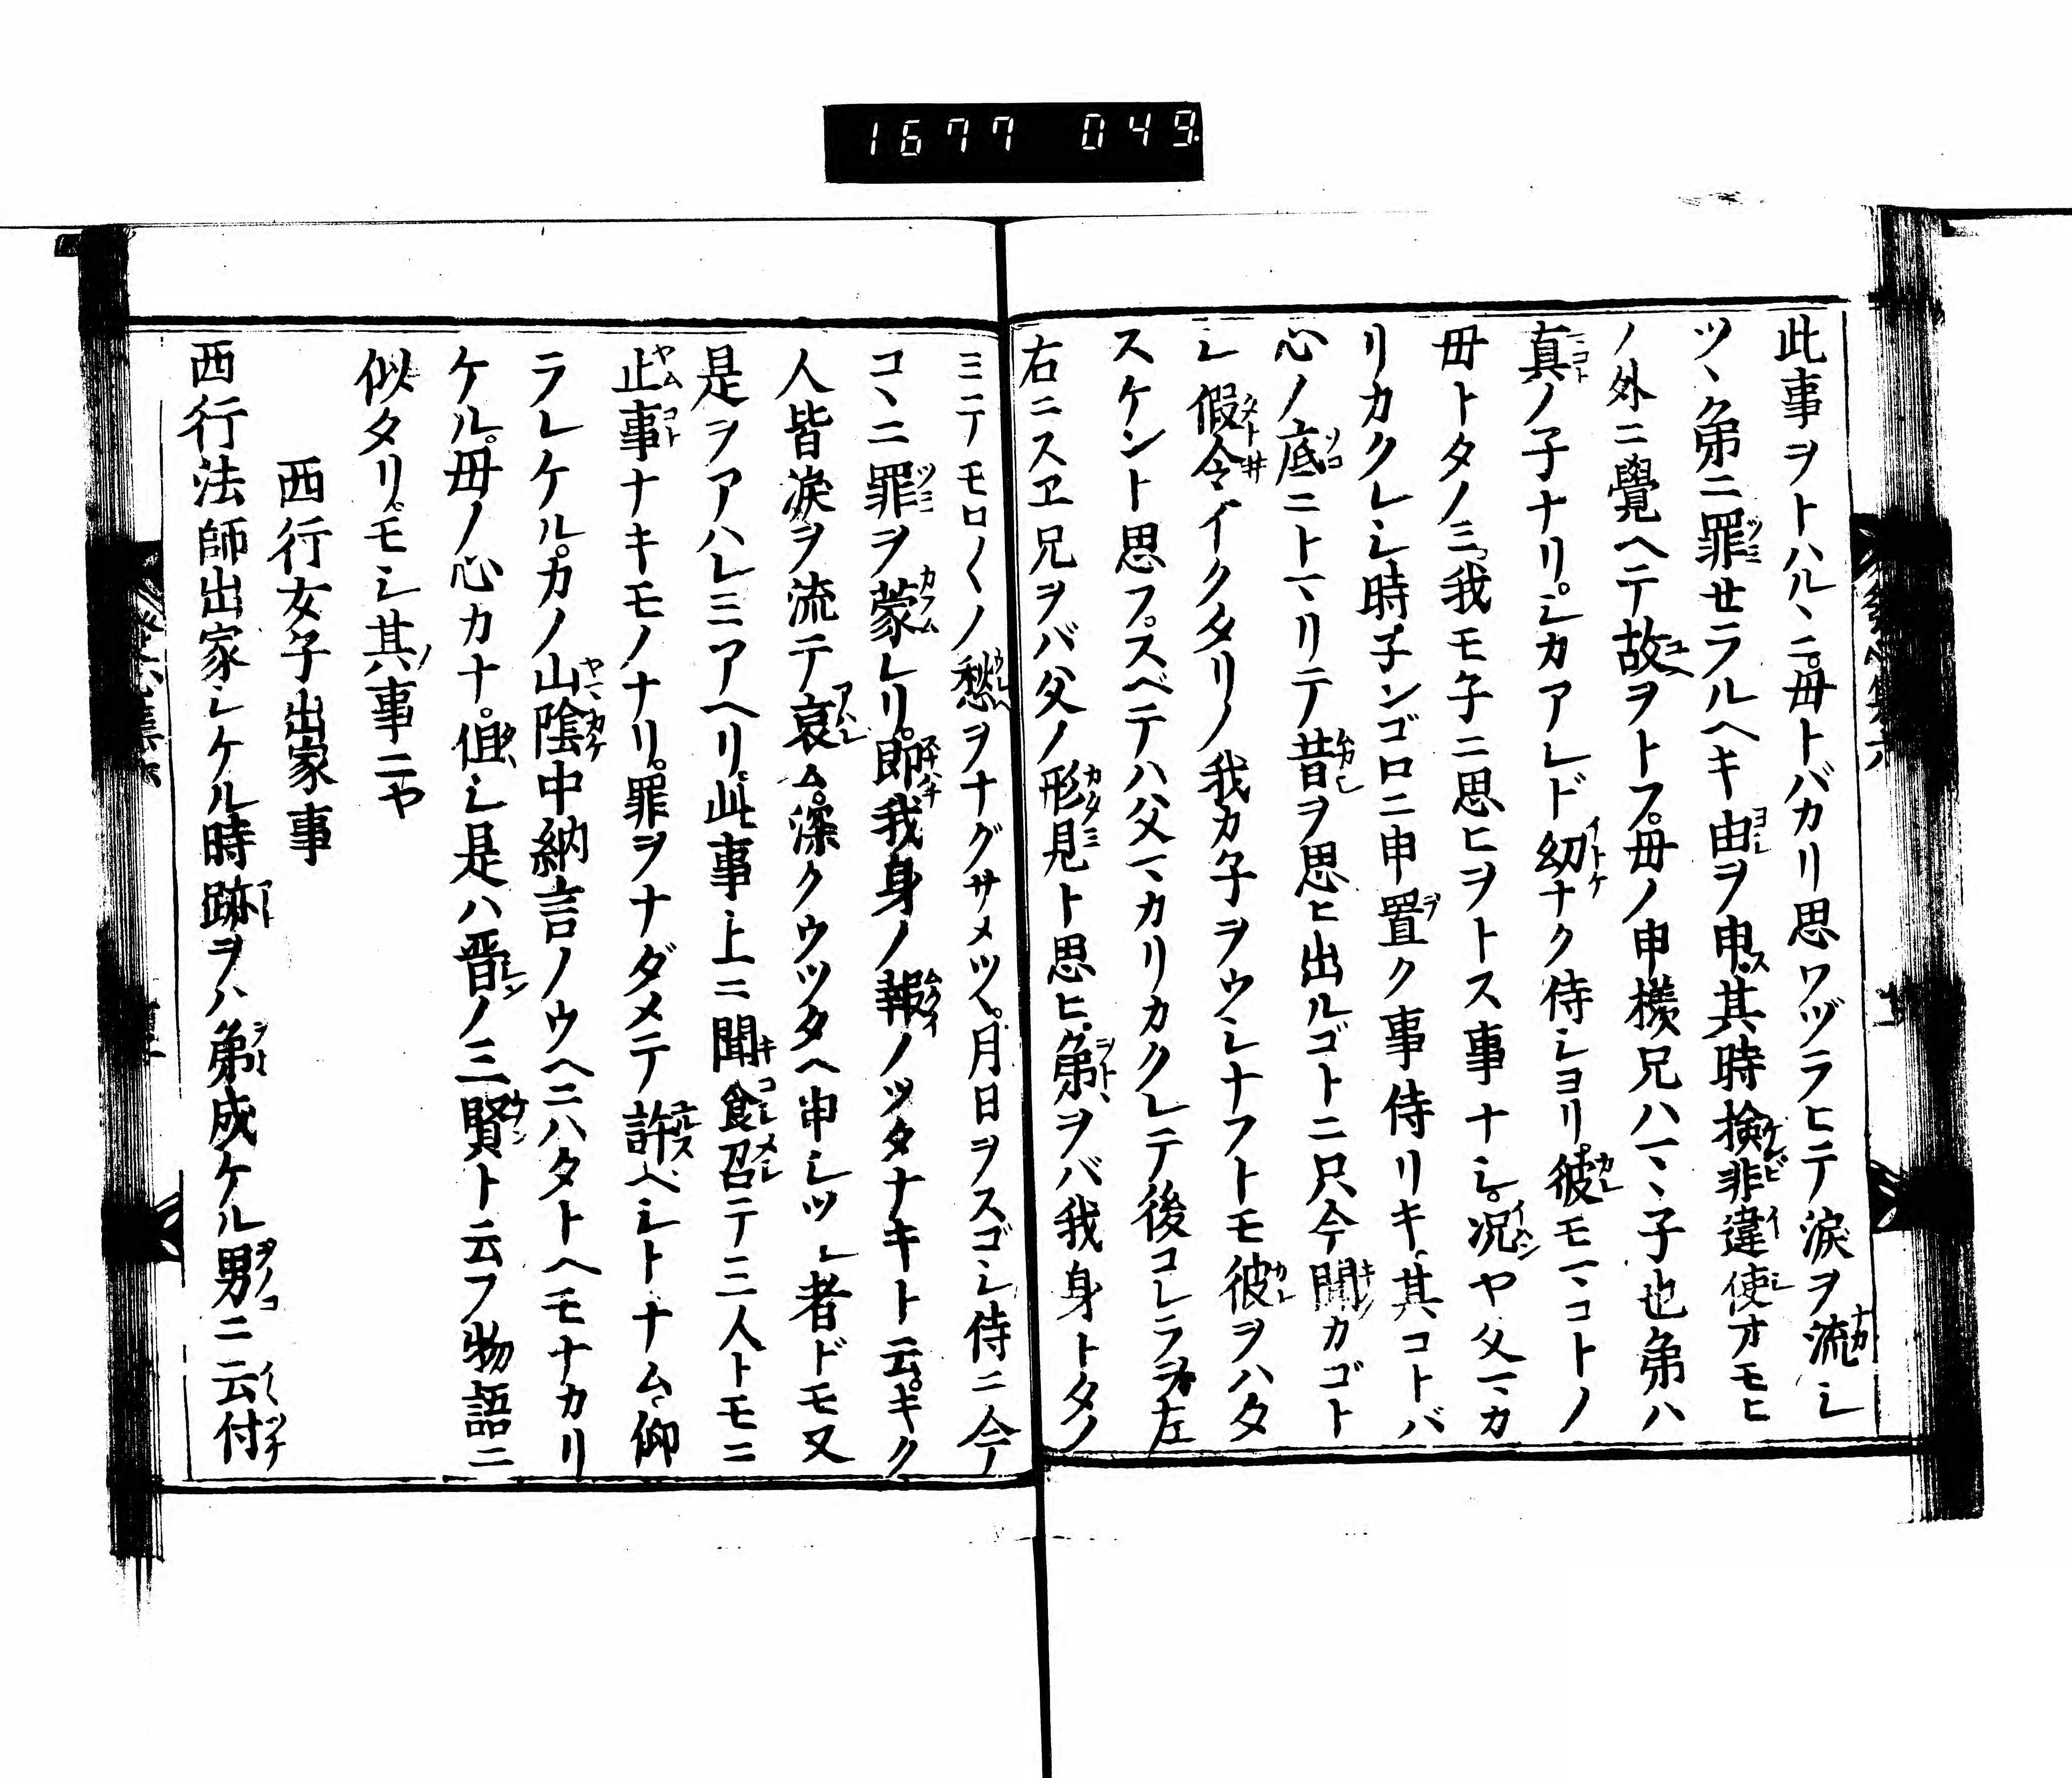 1677 049
此事ヲトハルヽニ。母トバカリ思ワヅラヒテ涙ヲ流シ
ツヽ弟ニ罪セラルヘキ由ヲ申ス。其時検非違使オモヒ
ノ外ニ覺ヘテ故ヲトフ。母ノ申様兄ハマヽ子也弟ハ
真ノ子ナリ。シカアレド幼ナク侍シヨリ。彼モマコトノ
母トタノミ我モ子ニ思ヒヲトス事ナシ。況ヤ父マカ
リカクレシ時子ンゴロニ申置ク事侍リキ。其コトバ
心ノ底ニトマリテ昔ヲ思ヒ出ルゴトニ只今聞カゴト
シ假令イクタリノ我カ子ヲウシナフトモ彼ヲハタ
スケント思フ。スベテハ父マカリカクレテ後コレラヲ左
右ニスヱ兄ヲバ父ノ形見ト思ヒ。弟ヲバ我身トタノ
ミテモロ〱ノ愁ヲナグサメツヽ。月日ヲスゴシ侍ニ今
コヽニ罪ヲ蒙レリ。即我身ノ報ノツタナキト云。キク
人皆涙ヲ流テ哀ム。深クウツタヘ申シツル者ドモ又
是ヲアハレミアヘリ。此事上ニ聞食召テ三人トモニ
止事ナキモノナリ。罪ヲナダメテ許ベシトナム仰
ラレケル。カノ山陰中納言ノウヘニハタトヘモナカリ
ケル。母ノ心カナ。但シ是ハ晋ノ三賢ト云フ物語ニ
似タリ。モシ其事ニヤ
西行女子出家事
西行法師出家シケル時跡ヲハ弟成ケル男ニ云付